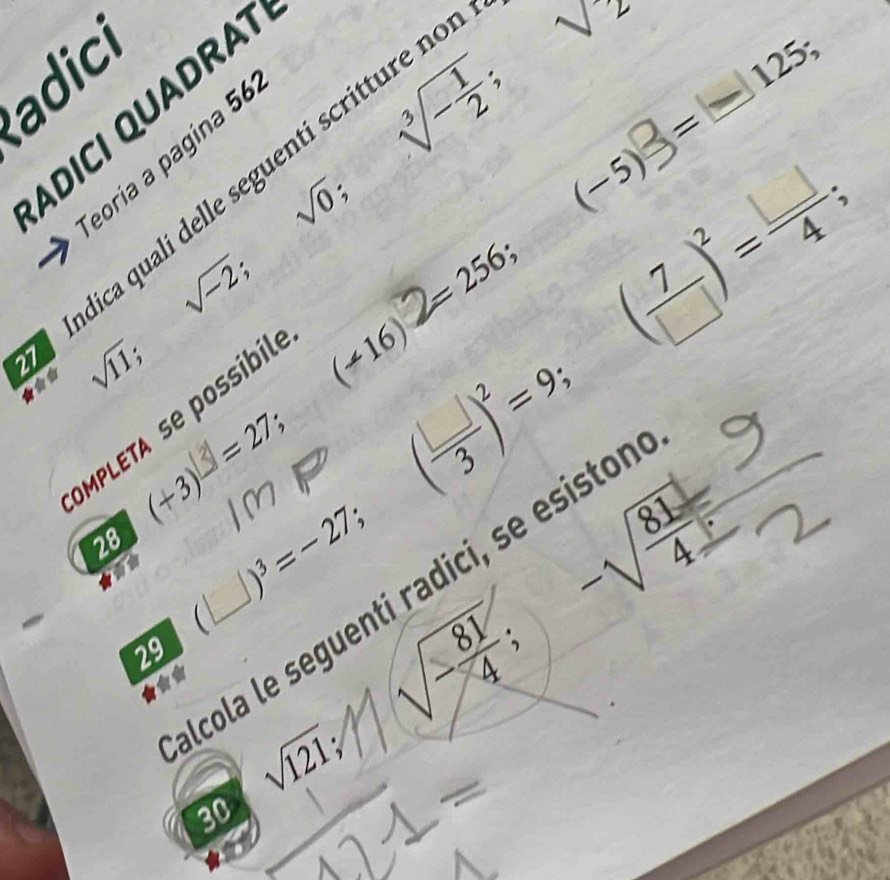 Radici
RADICI QUADRATE
Teoria a pagina 562
27 Indica quali delle seguenti scritture non
√11; √-2; √0; ∛-1/2; √ 2
COMPLETA se possibile.
28 (+3)^3 = 27; (-16)^2 = 256; (-5)^3 = -125;
IMP
29 (□)^3 = -27; (□/3)^2 = 9; (7/□)^2 = □/4;
Calcola le seguenti radici, se esistono.
30 √121; 11 √-81/4; -√81/4; = 9/2
121 =